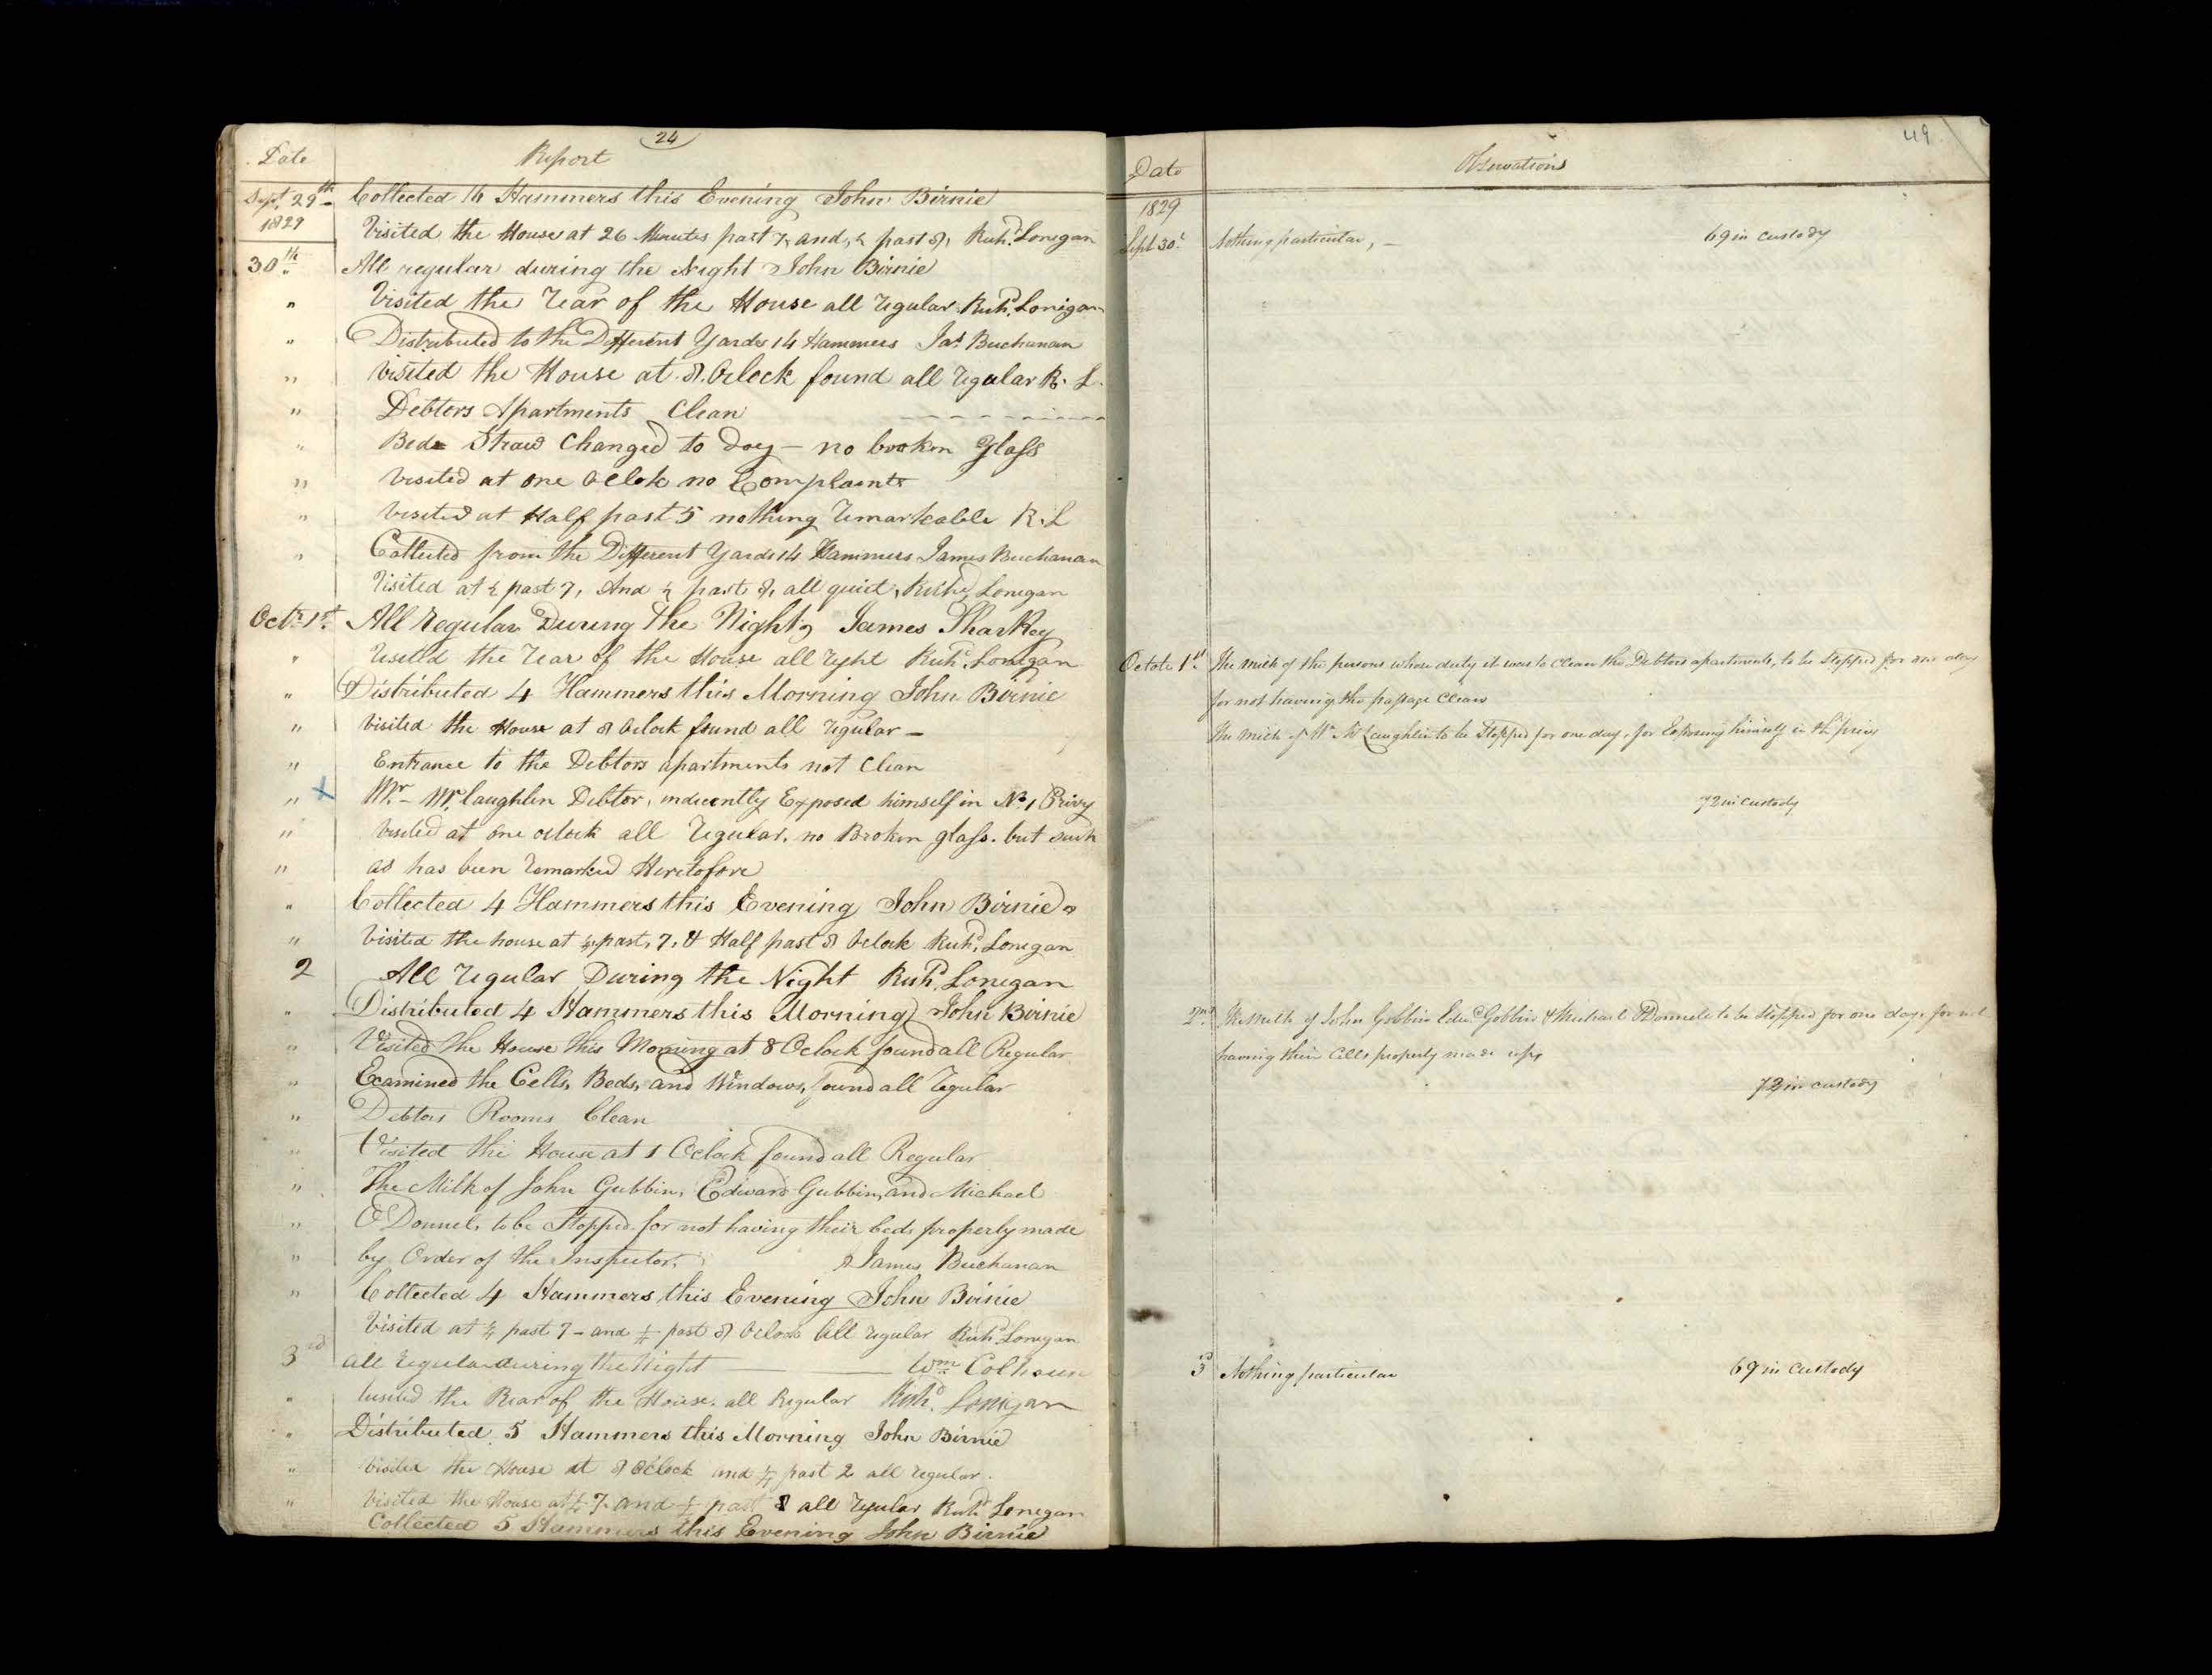 24
Date
Report
Sept. 29th Collected 16 Hammers this Evening John Birnie
1829
Visited the House at 26 Minutes past 7, and, ½ past 8, Richd. Lonigan
30th All regular during the Night John Birnie
" Visited the rear of the House all regular Richd. Lonigan
" Distributed to the Different Yards 14 Hammers Jas. Buchanan
" Visited the House at 8. Oclock found all regular R. L.
" Debtors Apartments Clean
" Beds Straw Changed to Day – no brokn Glass
" Visited at one Oclok no Complaints
" Visited at Half past 5 nothing remarkable R. L
" Collected from the Different Yards 14 Hammers James Buchanan
Visited at ½ past 7, And ½ past 8, all quiet, Richd. Lonigan
Octr. 1st. All Regular During the Night, James Sharkey
" Viseted the rear of the House all right Richd. Lonigan
" Distributed 4 Hammers this Morning John Birnie
" Visited the House at 8 Oclock found all regular –
" Entrance to the Debtors apartments not Clean
" x Wm. McLaughlin Debtor, indecently Exposed himself in No. 1 Privy
" Visited at one oclock all regular. no Broken glass. but such
" as has been remarked Heretofore
" Collected 4 Hammers this Evening John Birnie
" Visited the house at past, 7, & Half past 8 Oclock Richd. Lonigan
2 All regular During the Night Richd. Lonigan
" Distributed 4 Hammers this Morning John Birnie
" Visited the House this Morning at 8 Oclock found all Regular
" Examined the Cells, Beds, and Windows, found all regular
" Debtors Rooms Clean
" Visited the House at 1 Oclock found all Regular
" The Milk of John Gubbin, Edward Gubbin, and Michael
" O'Donnel, to be Stopped for not having their beds properly made
" by Order of the Inspector. James Buchanan
" Collected 4 Hammers this Evening John Birnie
Visited at past 7 – and past 8 Oclock All regular Richd. Lonigan
3rd all regular during the Night Wm. Colhoun
" Visited the Rear of the House. all Regular Richd. Lonigan
" Distributed 5 Hammers this Morning John Birnie
" Visited the House at 8 OClock and past 2 all regular.
" Visited the House at 7. and past 8 all regular Richd. Lonigan
Collected 5 Hammers this Evening John Birnie
49
Date
Observations
1829
Sept 30th. Nothing particular, – 69 in custody
Octobr 1st. The milk of the persons whose duty it was to clean the Debtors apartments, to be Stopped for one day
for not having the passage clean
The milk of Wm McLaughlin to be Stopped for one day, for Exposing himself in the privy
72 in custody
2nd. The milk of John Gobbin Edwd. Gobbin & Michael O'Donnele to be Stopped for one day, for not
having their cells properly made up,
72 in custody
3d Nothing particular 69 in Custody